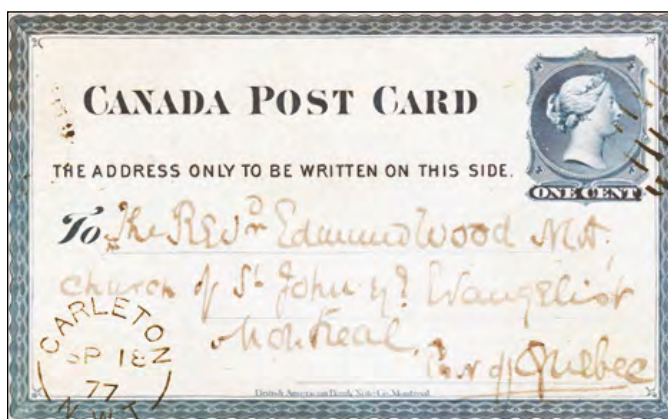 CANADA POST CARD
THE ADDRESS ONLY TO BE WRITTEN ON THIS SIDE.
ONE CENT
To The Revd Edmund Wood M.A.
Church of St John ye Evangelist
Montreal
Prov of Quebec
CARLETON
SP 18
77
N.W.T
British American Bank Note Co. Montreal